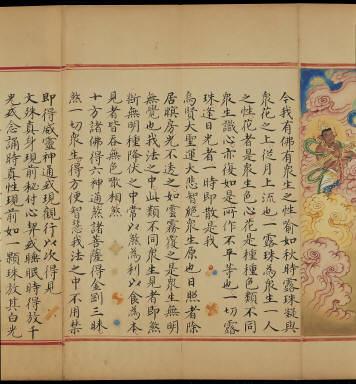 今我有佛有衆生之性喻如秋時露珠凝與
衆花之上從月上流也一露珠為衆生一人
之性花者是衆生色心花是種種色類不同
衆生識心亦復如是所作不平等也一切露
珠逢日光者一時即散是我
為賢大聖運大悲智絕衆生原也日照者除
居暝房光不透之如雲霧覆之是衆生無明
無覺也我法之中此類不同衆生見者即煞
斷無明種降伏之中常以煞為利以食為本
見者皆吞無色歌相煞
十方諸佛得六神通煞諸菩薩得金剛三昧
煞一切衆生得方便智慧我法之中不用禁
即得威靈神通或現觀行以次得見
文殊真身現前秘付心契或睡眠時得放千
光或念誦時真性現前如一顆珠放其白光